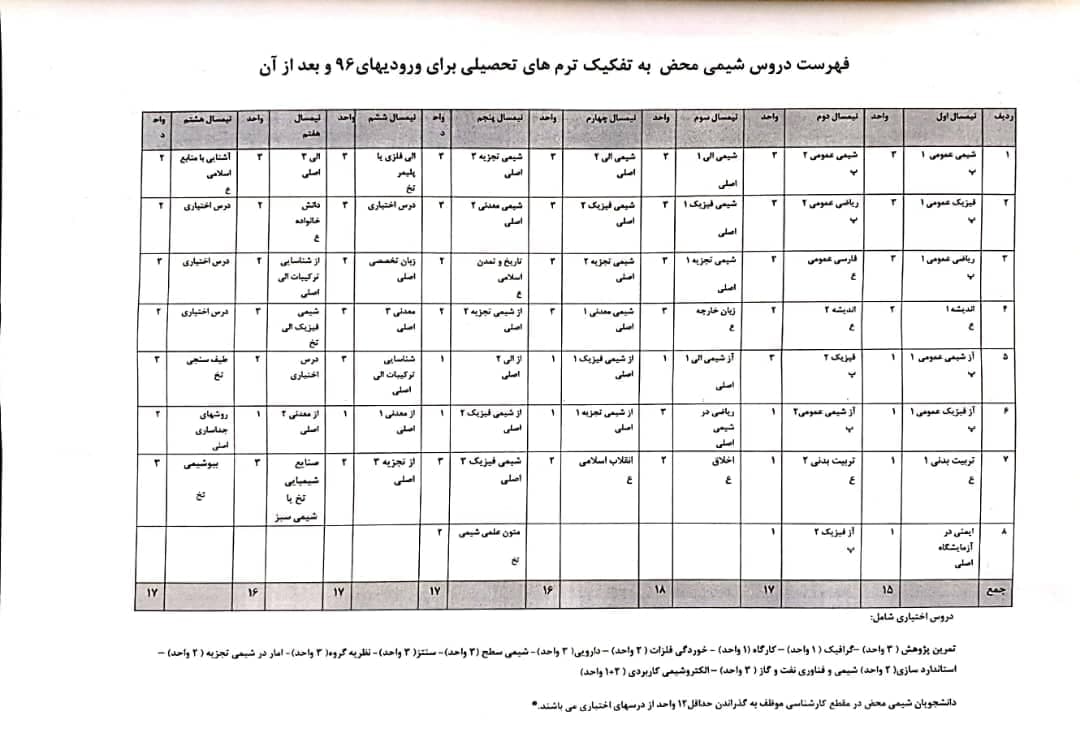 فهرست دروس شیمی محض به تفکیک ترم های تحصیلی برای ورودیهای ۹۶ و بعد از آن
ردیف نیمسال اول واحد نیمسال دوم واحد نیمسال سوم واحد نیمسال چهارم واحد نیمسال پنجم واحد نیمسال ششم واحد نیمسال هفتم واحد نیمسال هشتم واحد
۱ شیمی عمومی ۱ پ ۳ شیمی عمومی ۲ پ ۳ شیمی الی ۱ اصلی ۳ شیمی الی ۲ اصلی ۳ شیمی تجزیه ۳ اصلی ۳ الی فلزی یا پلیمر تخ ۳ الی ۳ اصلی ۳ آشنایی با منابع اسلامی ع ۲
۲ فیزیک عمومی ۱ پ ۳ ریاضی عمومی ۲ پ ۳ شیمی فیزیک ۱ اصلی ۳ شیمی فیزیک ۲ اصلی ۳ شیمی معدنی ۲ اصلی ۳ درس اختیاری ۳ دانش خانواده ع ۲ درس اختیاری ۲
۳ ریاضی عمومی ۱ پ ۳ فارسی عمومی ع ۳ شیمی تجزیه ۱ اصلی ۳ شیمی تجزیه ۲ اصلی ۳ تاریخ و تمدن اسلامی ع ۲ زبان تخصصی اصلی ۲ از شناسایی ترکیبات الی اصلی ۲ درس اختیاری ۳
۴ اندیشه ۱ ع ۲ اندیشه ۲ ع ۲ زبان خارجه ع ۳ شیمی معدنی ۱ اصلی ۳ از شیمی تجزیه ۲ اصلی ۲ معدنی ۳ اصلی ۳ شیمی فیزیک الی تخ ۳ درس اختیاری ۲
۵ آز شیمی عمومی ۱ پ ۱ فیزیک ۲ پ ۳ آز شیمی الی ۱ اصلی ۱ از شیمی فیزیک ۱ اصلی ۱ از الی ۲ اصلی ۱ شناسایی ترکیبات الی اصلی ۳ درس اختیاری ۲ طیف سنجی تخ ۳
۶ آز فیزیک عمومی ۱ پ ۱ آز شیمی عمومی۲ پ ۱ ریاضی در شیمی اصلی ۳ از شیمی تجزیه ۱ اصلی ۱ از شیمی فیزیک ۲ اصلی ۱ از معدنی ۱ اصلی ۱ از معدنی ۲ اصلی ۱ روشهای جداسازی اصلی ۲
۷ تربیت بدنی ۱ ع ۱ تربیت بدنی ۲ ع ۱ اخلاق ع ۲ انقلاب اسلامی ع ۲ شیمی فیزیک ۳ اصلی ۳ از تجزیه ۳ اصلی ۲ صنایع شیمیایی تخ یا شیمی سبز ۳ بیوشیمی تخ ۳
۸ ایمنی در آزمایشگاه اصلی ۱ آز فیزیک ۲ پ ۱ متون علمی شیمی تخ ۲
جمع ۱۵ ۱۷ ۱۸ ۱۶ ۱۷ ۱۷ ۱۶ ۱۷
دروس اختیاری شامل:
تمرین پژوهش ( ۳ واحد) –گرافیک ( ۱ واحد) – کارگاه (۱ واحد) - خوردگی فلزات ( ۲ واحد) –دارویی( ۳ واحد)- شیمی سطح (۳ واحد)- سنتز( ۳ واحد)- نظریه گروه( ۳ واحد)- امار در شیمی تجزیه ( ۲ واحد) –
استاندارد سازی( ۲ واحد) شیمی و فناوری نفت و گاز ( ۳ واحد) –الکتروشیمی کاربردی ( ۲+۱ واحد)
دانشجویان شیمی محض در مقطع کارشناسی موظف به گذراندن حداقل۱۲ واحد از درسهای اختیاری می باشند.*